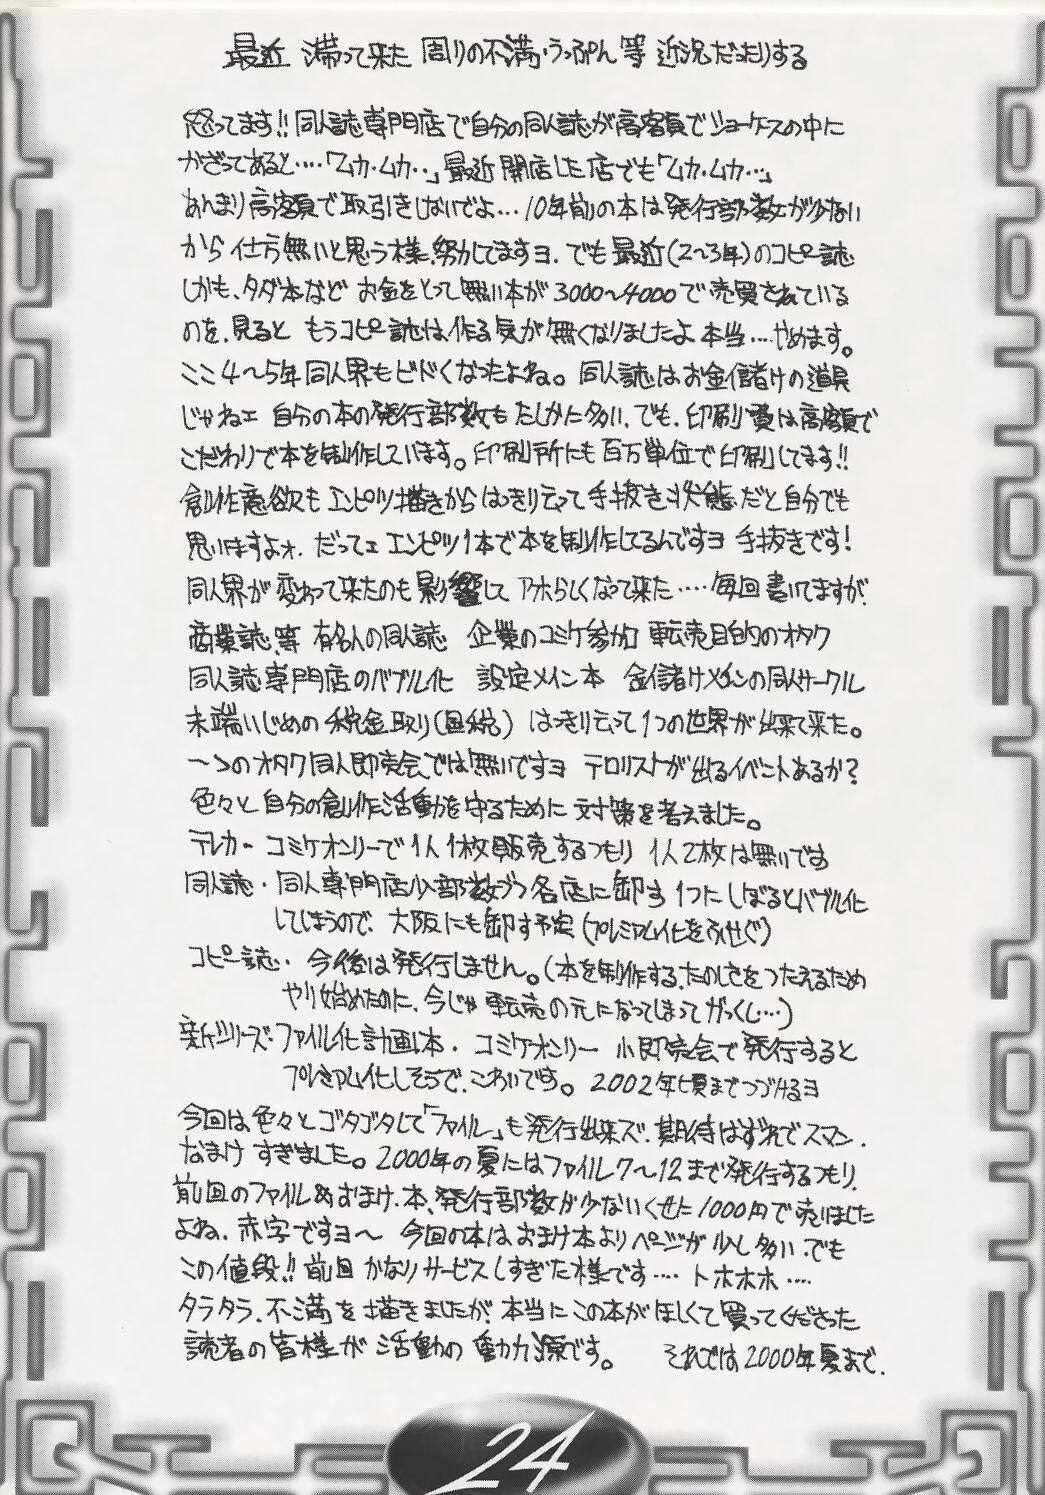 最近 滞って来た 周りの不満・うっぷん等 近況だったりする
怒ってます!!同人誌専門店で自分の同人誌が高額でショーケースの中に
かざってあると……「ムカ・ムカ…」最近開店した店でも「ムカ・ムカ…」
あんまり高額で取引きしないでよ…10年前の本は発行部数が少ない
から仕方無いと思う様、努力してますヨ.でも最近(2〜3年)のコピー誌
しかも、タダ本など お金をとって無い本が3000〜4000で売買されている
のを、見ると もうコピー誌は作る気が無くなりましたよ本当…やめます。
ここ4〜5年同人界もヒドくなったよね。同人誌はお金儲けの道具
じゃねェ 自分の本の発行部数もたしかに多い.でも、印刷費は高額で
こだわりで本を制作しています。印刷所にも百万単位で印刷してます!!
創作意欲もエンピツ描きからはっきり云って手抜き状態だと自分でも
思いますよォ.だってェエンピツ1本で本を制作してるんですヨ手抜きです!
同人界が変わって来たのも影響してアホらしくなって来た……毎回書いてますが、
商業誌等 有名人の同人誌 企業のコミケ参加 転売目的のオタク
同人誌専門店のバブル化 設定メイン本 金儲けメインの同人サークル
末端いじめの税金取り(国税) はっきり云って1つの世界が出来て来た。
のオタク同人即売会では無いですヨ テロリストが出るイベントあるか?
色々と自分の創作活動を守るために対策を考えました。
テレカ・ コミケオンリーで1人1枚販売するつもり 1人2枚は無いです
同人誌・同人専門店少部数づつ各店に卸す1つにしぼるとバブル化
してしまうので、大阪にも卸す予定(プレミアム化をふせぐ)
コピー誌・今後は発行しません。(本を制作する、たのしさをつたえるため
やり始めたのに、今じゃ転売の元になってしまってがっくし…)
新シリーズ・ファイル化計画本・コミケオンリー 小即売会で発行すると
プレミアム化しそうで、こわいです。2002年頃までつづけるヨ
今回は色々とゴタゴタして「ファイル」も発行出来ズ.期待はずれでスマン.
なまけすぎました。2000年の夏にはファイル7〜12まで発行するつもり.
前回のファイル&おまけ本、発行部数が少ないくせに1000円で売りました
よね.赤字ですヨ〜 今回の本はおまけ本よりページが少し多い.でも
この値段!!前回かなりサービスしすぎた様です……トホホホ……
タラタラ、不満を描きましたが、本当にこの本がほしくて買ってくださった
読者の皆様が活動の動力源です。 それでは2000年夏まで.
24